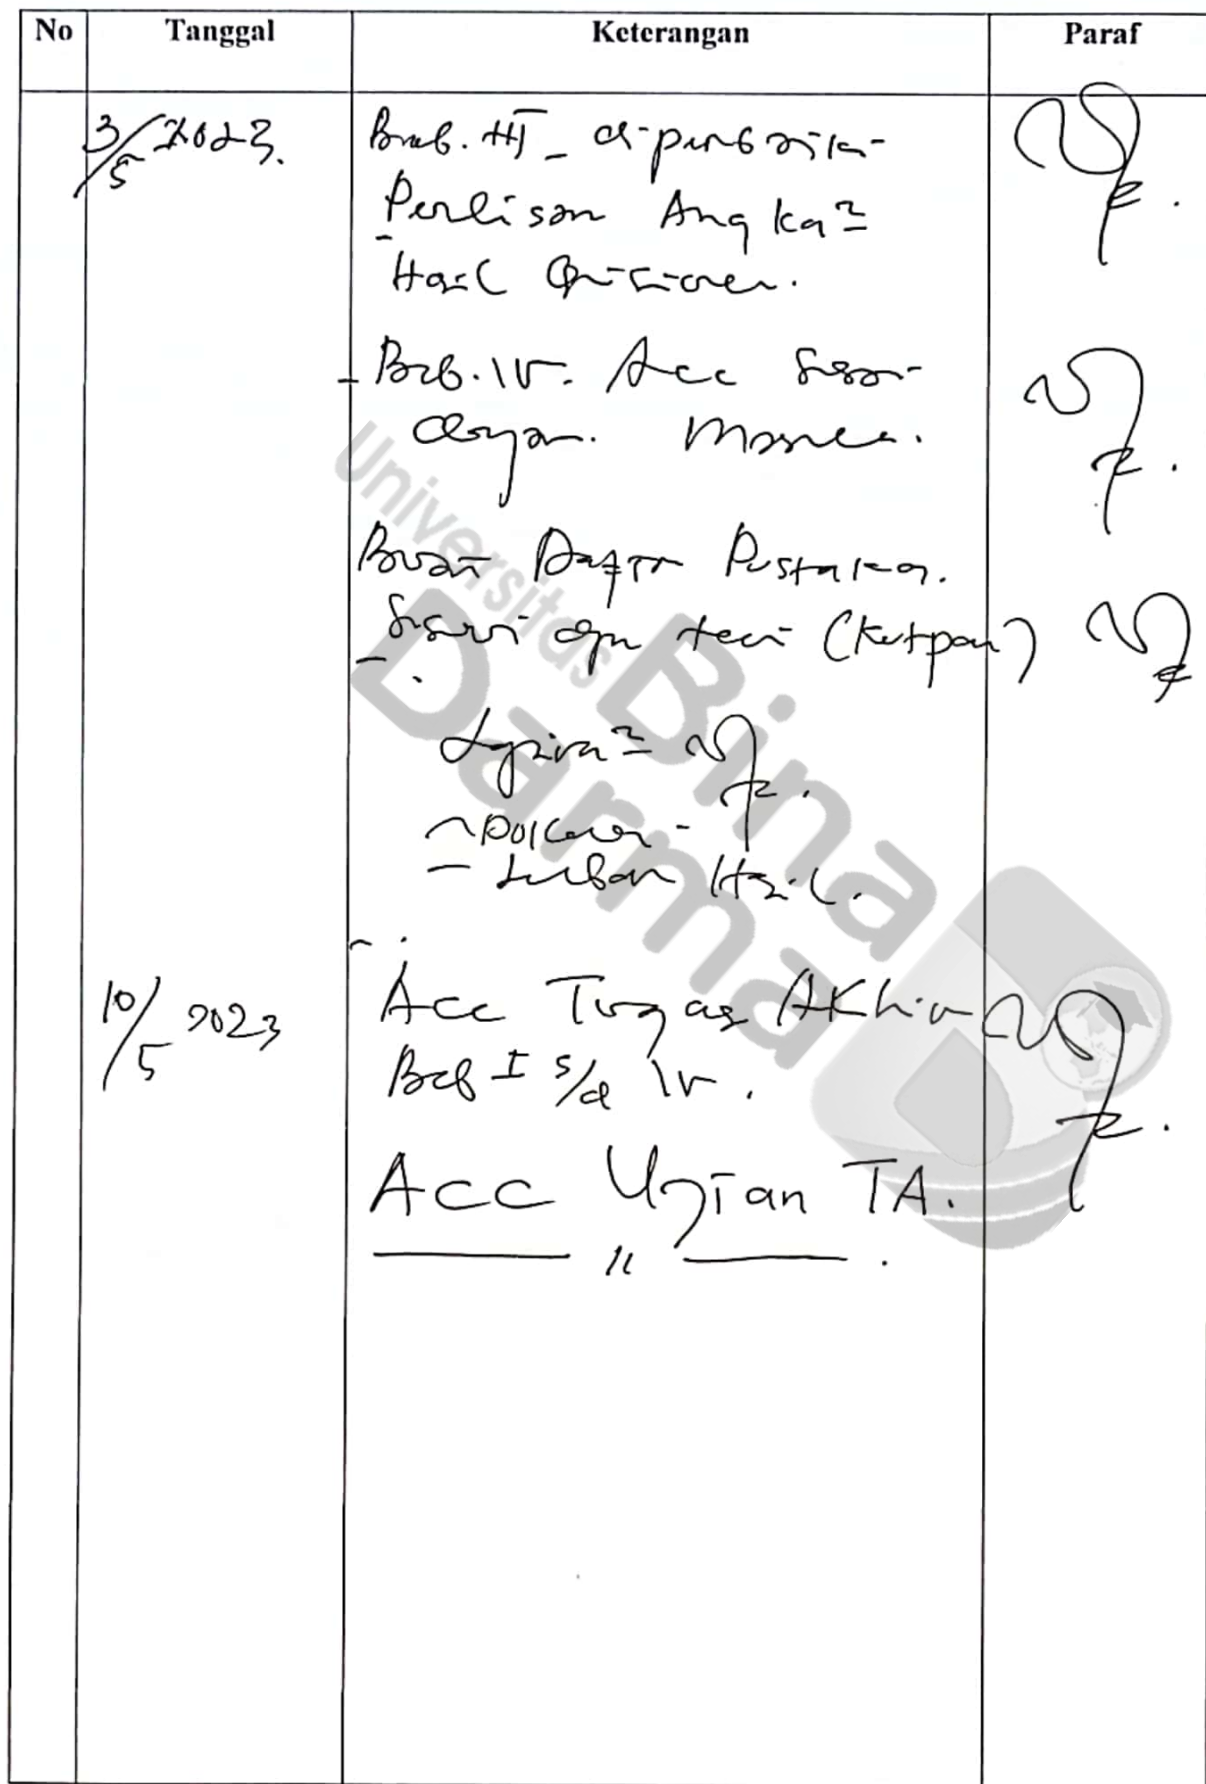 No Tanggal Keterangan Paraf
3/5 2023. Bab. III - diperbaiki
Penulisan Angka²
Hasil Quisioner.
- Bab. IV. Acc Sesuai
dengan
Buat Daftar Pustaka.
Sesuai dgn teori (Kutipan)
Universitas
Bina
Darma
Hasil.
10/5 2023 Acc Tugas Akhir
Bab I s/d IV.
Acc Ujian TA.